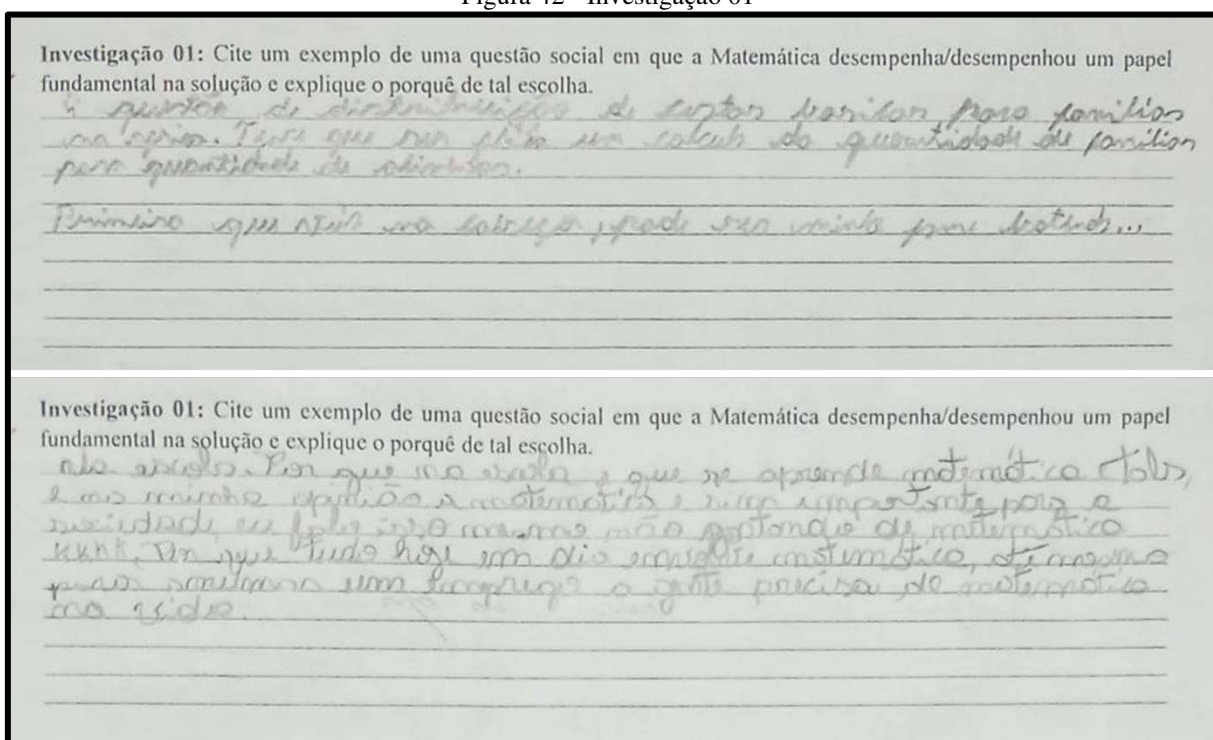 Figura 42 - Investigação 01
Investigação 01: Cite um exemplo de uma questão social em que a Matemática desempenha/desempenhou um papel
fundamental na solução e explique o porquê de tal escolha.
questão de distribuição de cestas basicas para familias
Teve que ser feito um calculo da quantidade de familias
para quantidade de
Primeiro que veio na cabeça, pode ser minha
Investigação 01: Cite um exemplo de uma questão social em que a Matemática desempenha/desempenhou um papel
fundamental na solução e explique o porquê de tal escolha.
Por que na escola e que se aprende matemática
e na minha opnião a matematica e importante para a
sociedade, eu falo isso mesmo não gostando de matematica
KKKK, Por que tudo hoje em dia matematica, até mesmo
para um emprego a gente precisa de matematica
na vida.